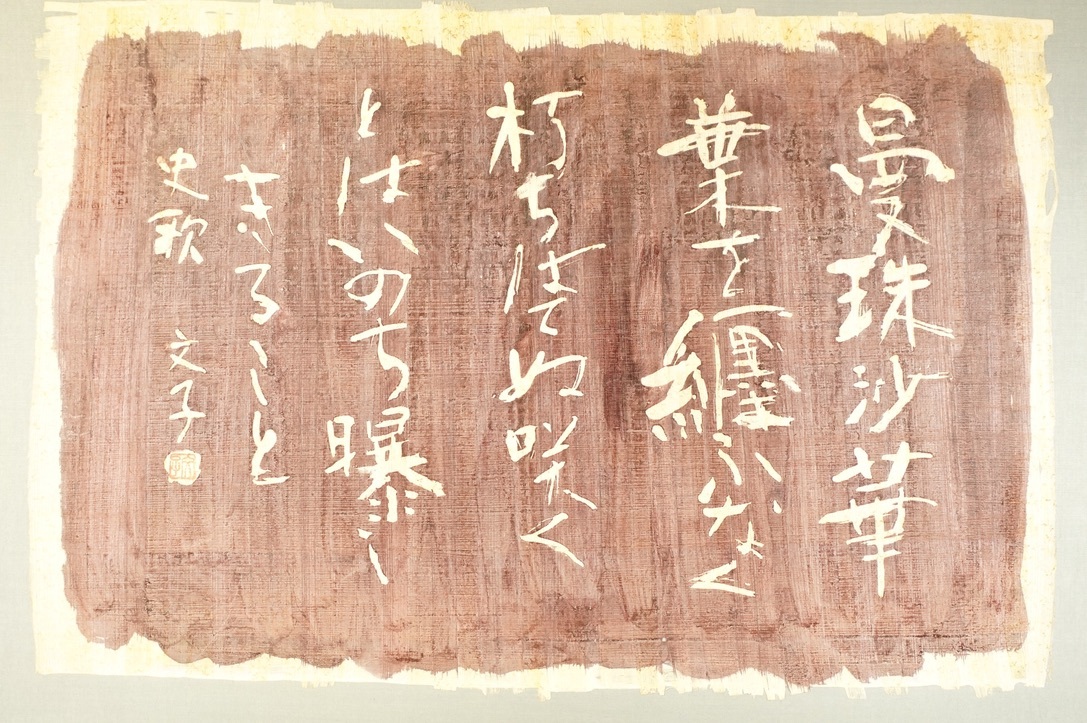 曼珠沙華
葉を纏ふなく
朽ちはてぬ咲く
とはいのち曝し
きること
史歌 文子